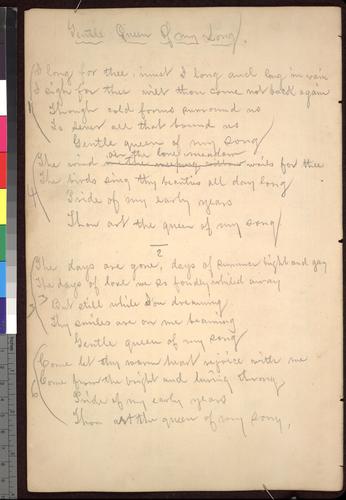 Gentle Queen Of my Song.
I long for thee, must I long and long in vain
I sigh for thee wilt thou come not back again
Though cold forms surround us
To sever all that bound us
Gentle queen of my song
in the lone meadow
The wind wails for thee
The birds sing thy beauties all day long
Pride of my early years
Thou art the queen of my song
4
2
The days are gone, days of summer bright and gay
The days of love we so fondly whiled away
But still while I'm dreaming
Thy smiles are on me beaming
Gentle queen of my song
Come let thy warm heart rejoice with me
Come from the bright and living throng
Pride of my early years
Thou art the queen of my song,